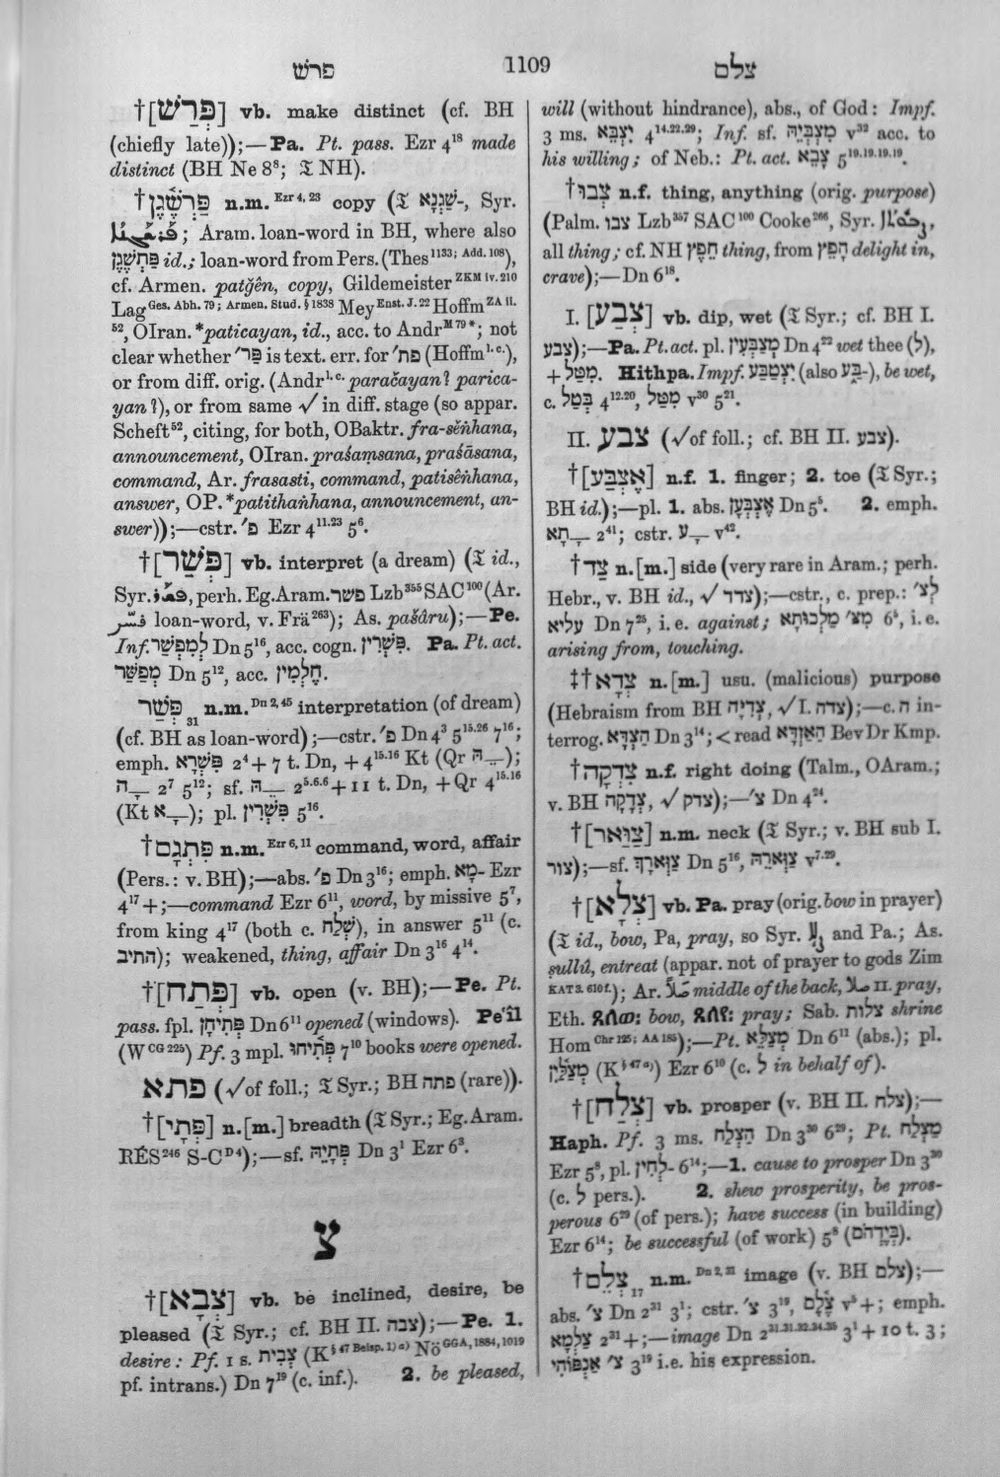 פרשׁ
1109
צלם
†[פְּרַשׁ] vb. make distinct (cf. BH
(chiefly late));—Pa. Pt. pass. Ezr 4¹⁸ made
distinct (BH Ne 8⁸; 𝔗 NH).
†פַּרְשֶׁגֶן n.m. Ezr 4, 23 copy (𝔗 שַׁגְנָא-, Syr.
; Aram. loan-word in BH, where also
פַּתְשֶׁגֶן id.; loan-word from Pers. (Thes 1133; Add. 108),
cf. Armen. patğên, copy, Gildemeister ZKM iv. 210
Lag Ges. Abh. 79; Armen. Stud. § 1838 Mey Enst. J. 22 Hoffm ZA ii.
52, OIran. *paticayan, id., acc. to Andr M 79*; not
clear whether פַּר׳ is text. err. for פת׳ (Hoffm l.c.),
or from diff. orig. (Andr l.c. paračayan? parica-
yan?), or from same √ in diff. stage (so appar.
Scheft⁵², citing, for both, OBaktr. fra-sěṅhana,
announcement, OIran. praśaṃsana, praśāsana,
command, Ar. frasasti, command, patisêṅhana,
answer, OP. *patithaṅhana, announcement, an-
swer));—cstr. פ׳ Ezr 4¹¹·²³ 5⁶.
†[פְּשַׁר] vb. interpret (a dream) (𝔗 id.,
Syr. , perh. Eg. Aram. פשר Lzb³⁵⁵ SAC¹⁰⁰ (Ar.
فسّر loan-word, v. Frä²⁶³); As. pašâru);—Pe.
Inf. לְמִפְשַׁר Dn 5¹⁶, acc. cogn. פִּשְׁרִין. Pa. Pt. act.
מְפַשַּׁר Dn 5¹², acc. חֶלְמִין.
פְּשַׁר 31 n.m. Dn 2, 45 interpretation (of dream)
(cf. BH as loan-word);—cstr. פ׳ Dn 4³ 5¹⁵·²⁶ 7¹⁶;
emph. פִּשְׁרָא 2⁴ + 7 t. Dn, + 4¹⁵·¹⁶ Kt (Qr ־ֵהּ);
־ָה 2⁷ 5¹²; sf. ־ֵהּ 2⁵·⁶·⁶ + 11 t. Dn, + Qr 4¹⁵·¹⁶
(Kt ־ָא); pl. פִּשְׁרִין 5¹⁶.
†פִּתְגָם n.m. Ezr 6, 11 command, word, affair
(Pers.: v. BH);—abs. פ׳ Dn 3¹⁶; emph. מָא- Ezr
4¹⁷ +;—command Ezr 6¹¹, word, by missive 5⁷,
from king 4¹⁷ (both c. שְׁלַח), in answer 5¹¹ (c.
התיב); weakened, thing, affair Dn 3¹⁶ 4¹⁴.
†[פְּתַח] vb. open (v. BH);—Pe. Pt.
pass. fpl. פְּתִיחָן Dn 6¹¹ opened (windows). Pe‘îl
(W CG 225) Pf. 3 mpl. פְּתִיחוּ 7¹⁰ books were opened.
פתא (√ of foll.; 𝔗 Syr.; BH פתה (rare)).
†[פְּתָי] n.[m.] breadth (𝔗 Syr.; Eg. Aram.
RÉS²⁴⁶ S-C D4);—sf. פְּתָיֵהּ Dn 3¹ Ezr 6³.
צ
†[צְבָא] vb. be inclined, desire, be
pleased (𝔗 Syr.; cf. BH II. צבה);—Pe. 1.
desire: Pf. 1 s. צְבִית (K § 47 Beisp. 1) a) Nö GGA, 1884, 1019
pf. intrans.) Dn 7¹⁹ (c. inf.). 2. be pleased,
will (without hindrance), abs., of God: Impf.
3 ms. יִצְבֵּא 4¹⁴·²²·²⁹; Inf. sf. מִצְבְּיֵהּ v³² acc. to
his willing; of Neb.: Pt. act. צָבֵא 5¹⁹·¹⁹·¹⁹·¹⁹.
†צְבוּ n.f. thing, anything (orig. purpose)
(Palm. צבו Lzb³⁵⁷ SAC¹⁰⁰ Cooke²⁶⁶, Syr. ,
all thing; cf. NH חֵפֶץ thing, from חָפֵץ delight in,
crave);—Dn 6¹⁸.
I. [צְבַע] vb. dip, wet (𝔗 Syr.; cf. BH I.
צבע);—Pa. Pt. act. pl. מְצַבְּעִין Dn 4²² wet thee (לְ),
+ מִטַּל. Hithpa. Impf. יִצְטַבַּע (also בָּע-), be wet,
c. בְּטַל 4¹²·²⁰, מִטַּל v³⁰ 5²¹.
II. צבע (√ of foll.; cf. BH II. צבע).
†[אֶצְבַּע] n.f. 1. finger; 2. toe (𝔗 Syr.;
BH id.);—pl. 1. abs. אֶצְבְּעָן Dn 5⁵. 2. emph.
־ָתָא 2⁴¹; cstr. ־ָע v⁴².
†צַד n.[m.] side (very rare in Aram.; perh.
Hebr., v. BH id., √ צדד);—cstr., c. prep.: לְצ׳
עליא Dn 7²⁵, i.e. against; מִצ׳ מַלְכוּתָא 6⁵, i.e.
arising from, touching.
‡†צְדָא n.[m.] usu. (malicious) purpose
(Hebraism from BH צְדִיָּה, √ I. צדה);—c. ה in-
terrog. הַצְדָּא Dn 3¹⁴; < read הַאַזְדָּא Bev Dr Kmp.
†צִדְקָה n.f. right doing (Talm., OAram.;
v. BH צְדָקָה, √ צדק);—צ׳ Dn 4²⁴.
†[צַוַּאר] n.m. neck (𝔗 Syr.; v. BH sub I.
צור);—sf. צַוְּארָךְ Dn 5¹⁶, צַוְּארֵהּ v⁷·²⁹.
†[צְלָא] vb. Pa. pray (orig. bow in prayer)
(𝔗 id., bow, Pa, pray, so Syr. and Pa.; As.
ṣullû, entreat (appar. not of prayer to gods Zim
KAT3. 610 f.); Ar. صلا middle of the back, صلا II. pray,
Eth. bow, pray; Sab. צלות shrine
Hom Chr 125; AA 185);—Pt. מְצַלֵּא Dn 6¹¹ (abs.); pl.
מְצַלַּיִן (K § 47 a)) Ezr 6¹⁰ (c. לְ in behalf of).
†[צְלַח] vb. prosper (v. BH II. צלח);—
Haph. Pf. 3 ms. הַצְלַח Dn 3³⁰ 6²⁹; Pt. מַצְלַח
Ezr 5⁸, pl. לְחִין- 6¹⁴;—1. cause to prosper Dn 3³⁰
(c. לְ pers.). 2. shew prosperity, be pros-
perous 6²⁹ (of pers.); have success (in building)
Ezr 6¹⁴; be successful (of work) 5⁸ (בְּיֶדְהֹם).
†צְלֵם 17 n.m. Dn 2, 31 image (v. BH צלם);—
abs. צ׳ Dn 2³¹ 3¹; cstr. צ׳ 3¹⁹, צֶלֶם v⁵ +; emph.
צַלְמָא 2³¹ +;—image Dn 2³¹·³¹·³²·³⁴·³⁵ 3¹ + 10 t. 3;
צ׳ אַנְפּוֹהִי 3¹⁹ i.e. his expression.